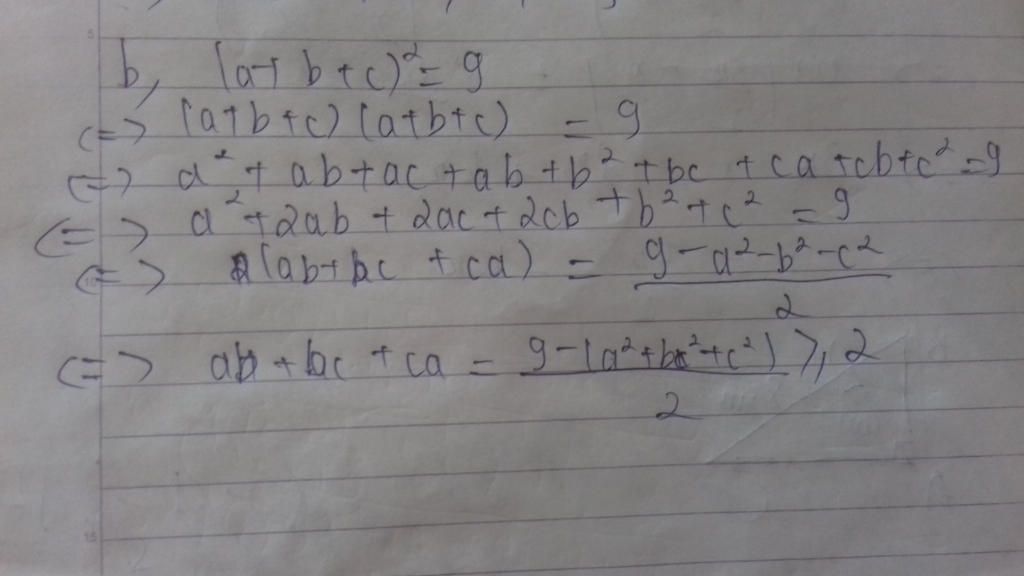 b, (a+b+c)² = 9
<=> (a+b+c)(a+b+c) = 9
<=> a² + ab+ac+ab+b²+bc +ca+cb+c² =9
<=> a²+2ab + 2ac+2cb +b²+c² = 9
<=> (ab+bc +ca) = \frac{9-a²-b²-c²}{2}
<=> ab+bc +ca = \frac{9-(a²+b²+c²)}{2} ⩾ 2